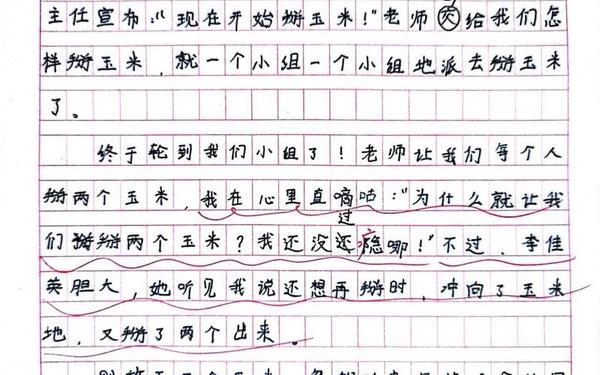 主任宣布:“现在开始掰玉米!”老师教给我们怎
样掰玉米,就一个小组一个小组地派去掰玉米
了。
终于轮到我们小组了!老师让我们每个人
掰两个玉米,我在心里直嘀咕:“为什么就让我
们掰两个玉米?我还没过瘾哪!”不过,李佳
英胆大,她听见我说还想再掰时,冲向了玉米
地,又掰了两个出来。